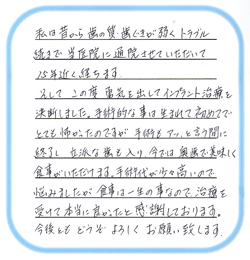 私は昔から歯の質、歯ぐきが弱くトラブル
続きで当医院に通院させていただいて
15年近く経ちます。
そして この度 勇気を出してインプラント治療を
決断しました。手術的な事は生まれて初めてで
とても怖かったのですが 手術も アッ、と言う間に
終了し 立派な歯も入り、今では奥歯で美味しく
食事がいただけます。手術代が少々高いので
悩みましたが 食事は一生の事なので、治療を
受けて本当に良かったと感謝しております。
今後とも どうぞ よろしく お願い致します。